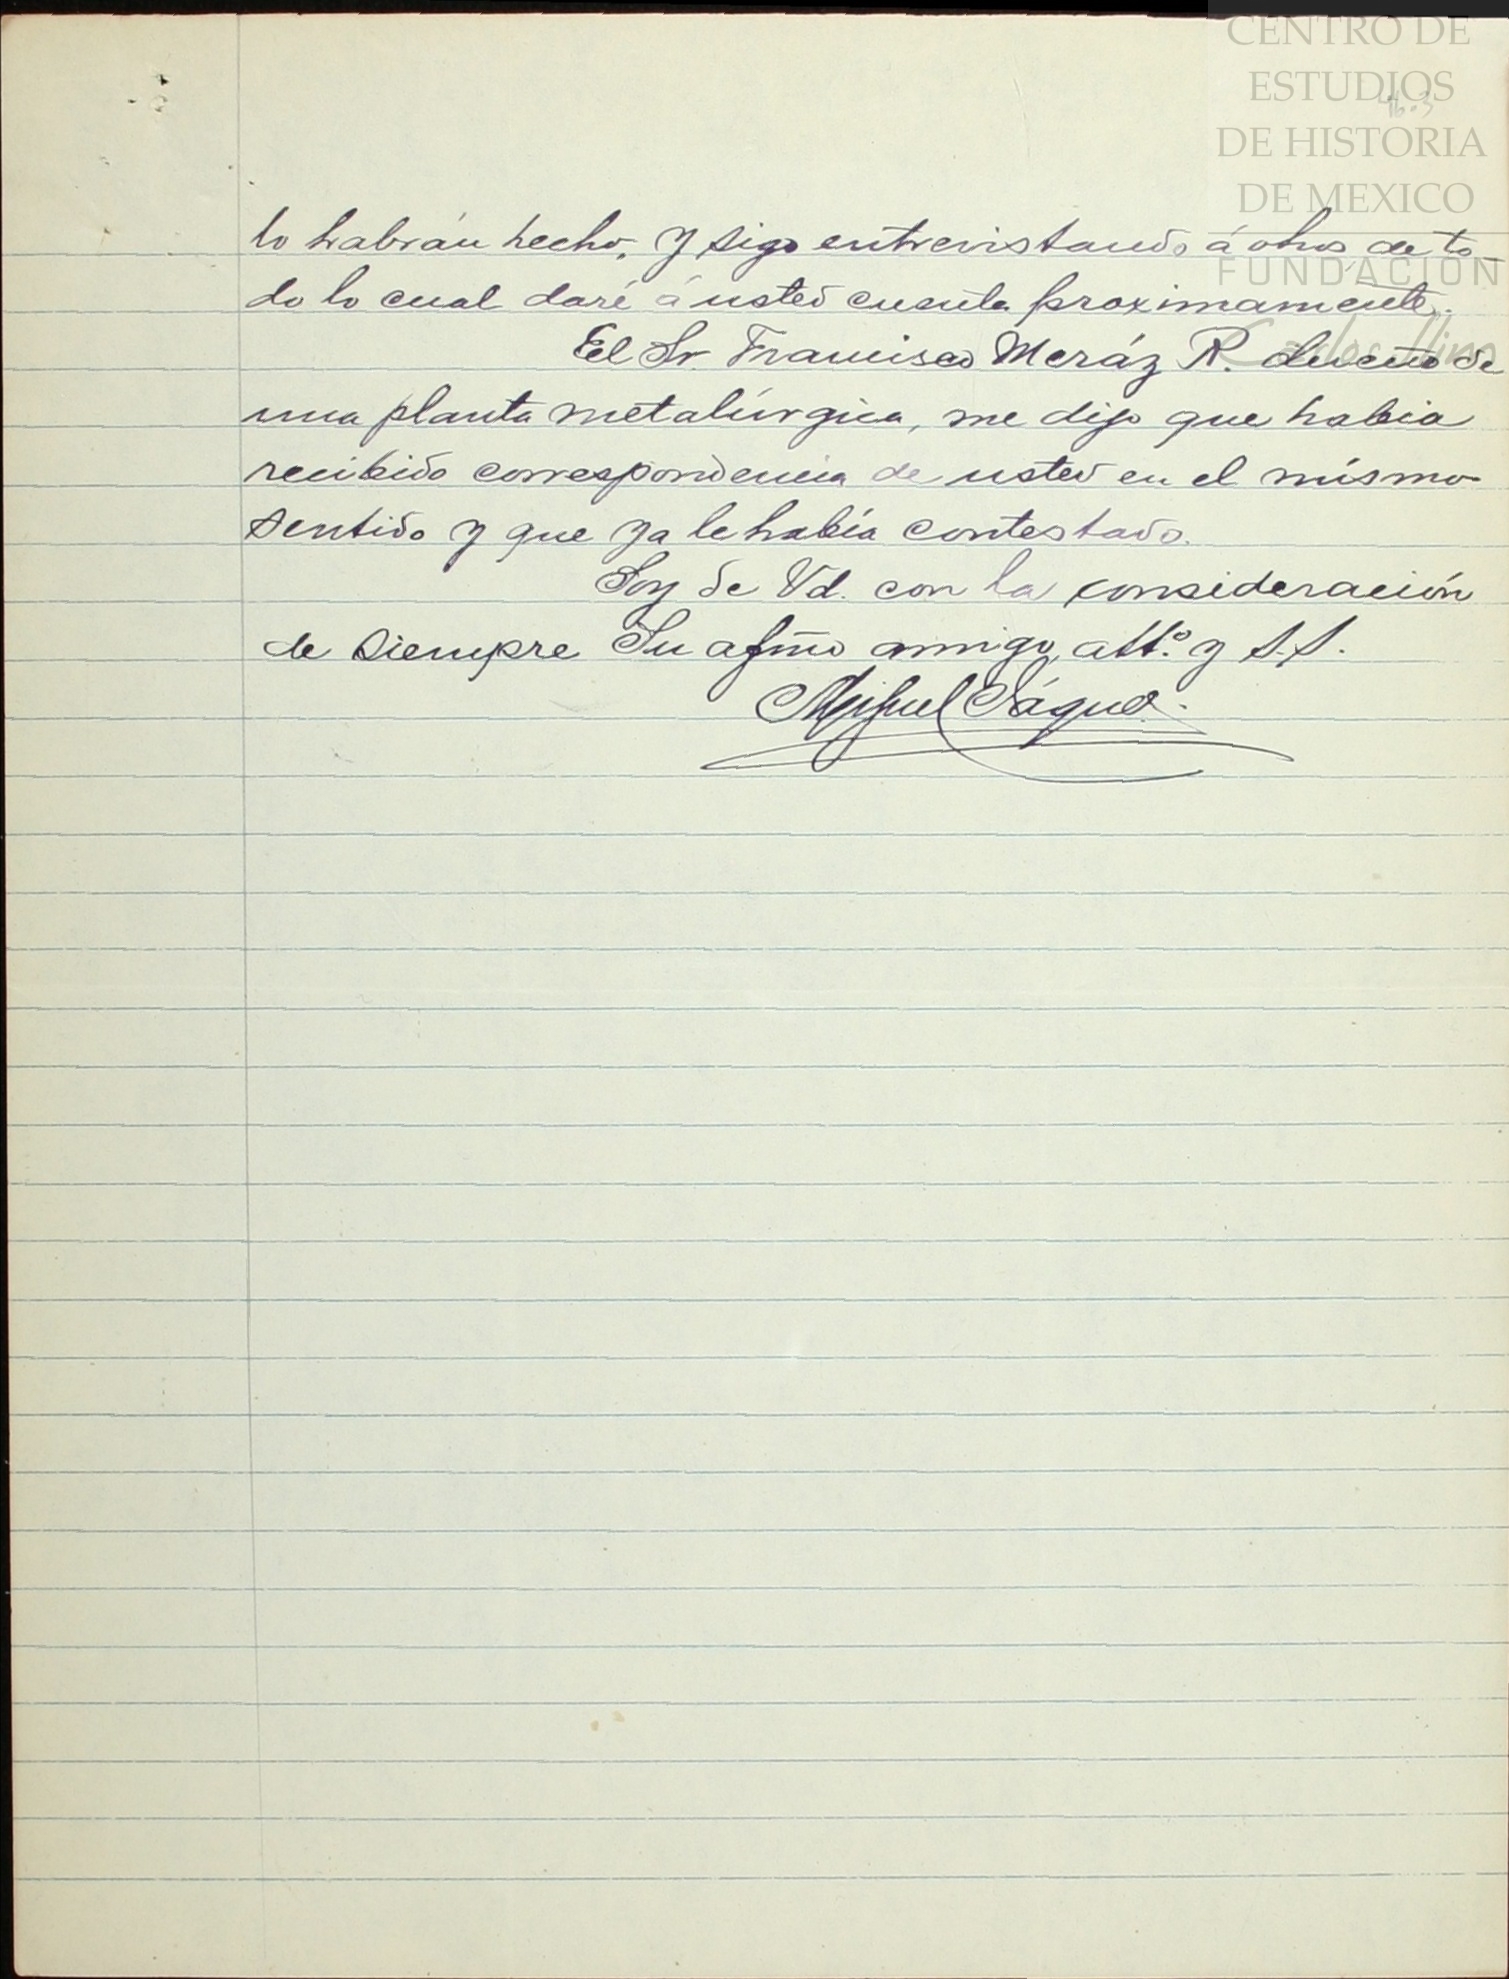 CENTRO DE
ESTUDIOS
DE HISTORIA
DE MEXICO
FUNDACIÓN
Carlos Slim
46-3
lo habrán hecho, y sigo entrevistando á otros de to-
do lo cual daré á usted cuenta proximamente.
El Sr. Francisco Meráz R. dueño de
una planta metalúrgica, me dijo que habia
recibido correspondencia de usted en el mísmo
sentido y que ya le había contestado.
Soy de Vd. con la consideración
de siempre Su afmo amigo, att.º y S.S.
Miguel Ságuo.